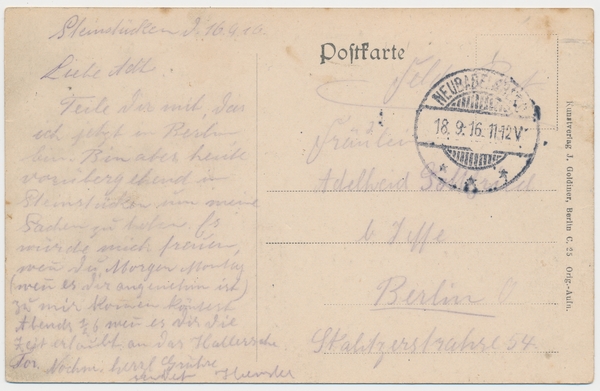 Steinstücken d. 16.9.16
Liebe Adl.
Teile Dir mit, das
ich jetzt in Berlin
bin. Bin aber heute
vorübergehend in
Steinstücken um meine
Sachen zu holen. Es
würde mich freuen,
wen Du, Morgen Montag
(wen es dir angenehm ist)
zu mir komen könst
Abends wen es dir die
Zeit erlaubt an das Hallersche
Tor. Nochm. herzl. Grüße
sendet
Postkarte
Feldpost
NEUBABELSBERG
18.9.16.11-12V
Fräulein
Adelheid
b
Berlin
Skalitzerstrahse 54
Kunstverlag J. Goldiner, Berlin C. 25 Orig.-Aufn.